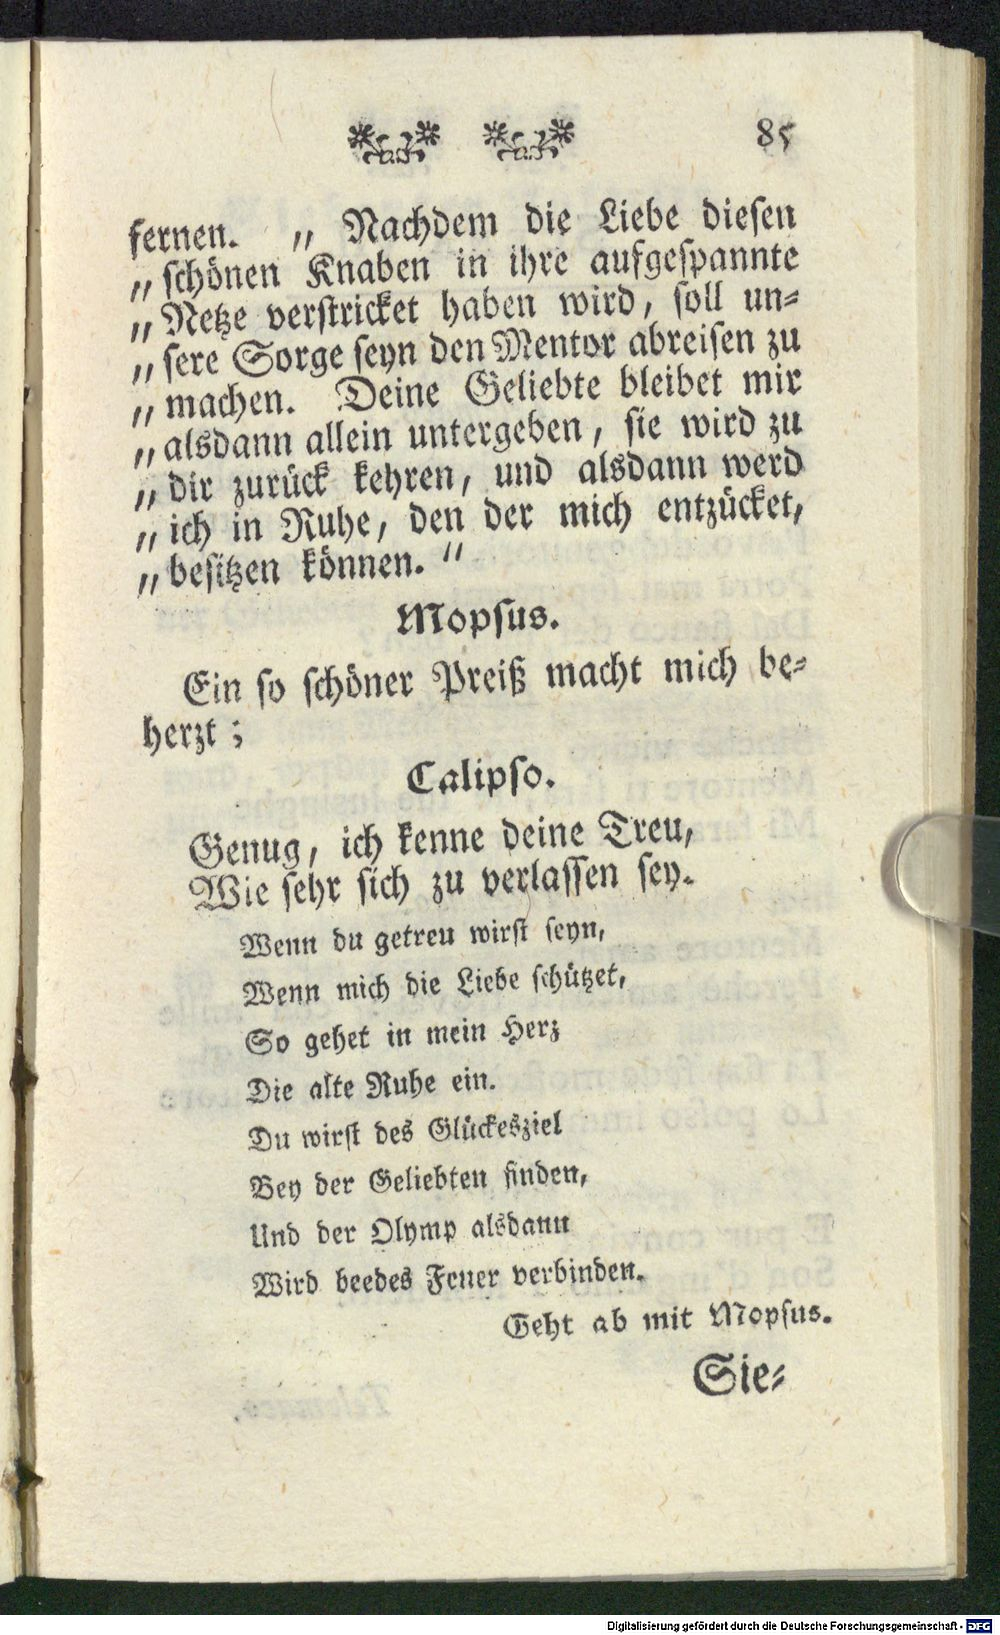 85
fernen. „ Nachdem die Liebe diesen
„ schönen Knaben in ihre aufgespannte
„ Netze verstricket haben wird, soll un-
„ sere Sorge seyn den Mentor abreisen zu
„ machen. Deine Geliebte bleibet mir
„ alsdann allein untergeben, sie wird zu
„ dir zurück kehren, und alsdann werd
„ ich in Ruhe, den der mich entzücket,
„ besitzen können. “
Mopsus.
Ein so schöner Preiß macht mich be-
herzt ;
Calipso.
Genug, ich kenne deine Treu,
Wie sehr sich zu verlassen sey.
Wenn du getreu wirst seyn,
Wenn mich die Liebe schützet,
So gehet in mein Herz
Die alte Ruhe ein.
Du wirst des Glückesziel
Bey der Geliebten finden,
Und der Olymp alsdann
Wird beedes Feuer verbinden.
Geht ab mit Mopsus.
Sie-
Digitalisierung gefördert durch die Deutsche Forschungsgemeinschaft - DFG